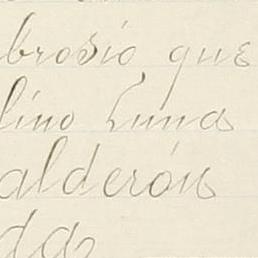 brosio que
lino Luna
alderón
da